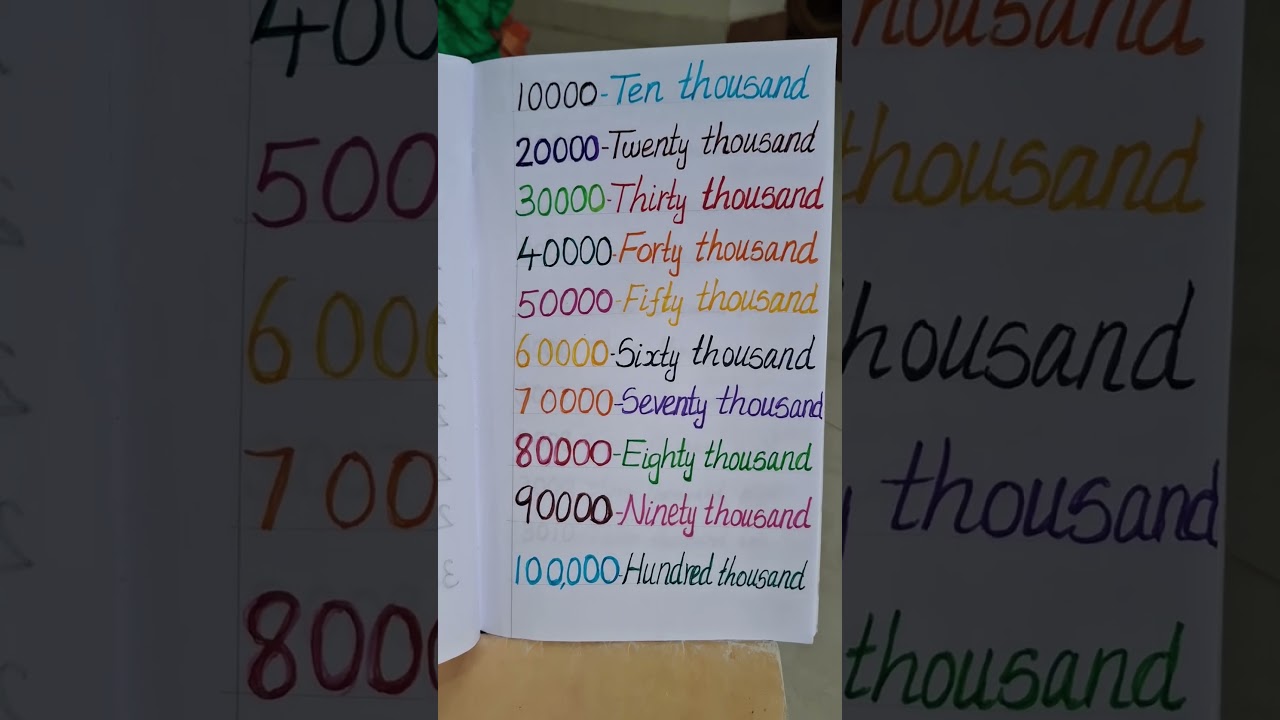 10000-Ten thousand
20000-Twenty thousand
30000-Thirty thousand
40000-Forty thousand
50000-Fifty thousand
60000-Sixty thousand
70000-Seventy thousand
80000-Eighty thousand
90000-Ninety thousand
100,000-Hundred thousand